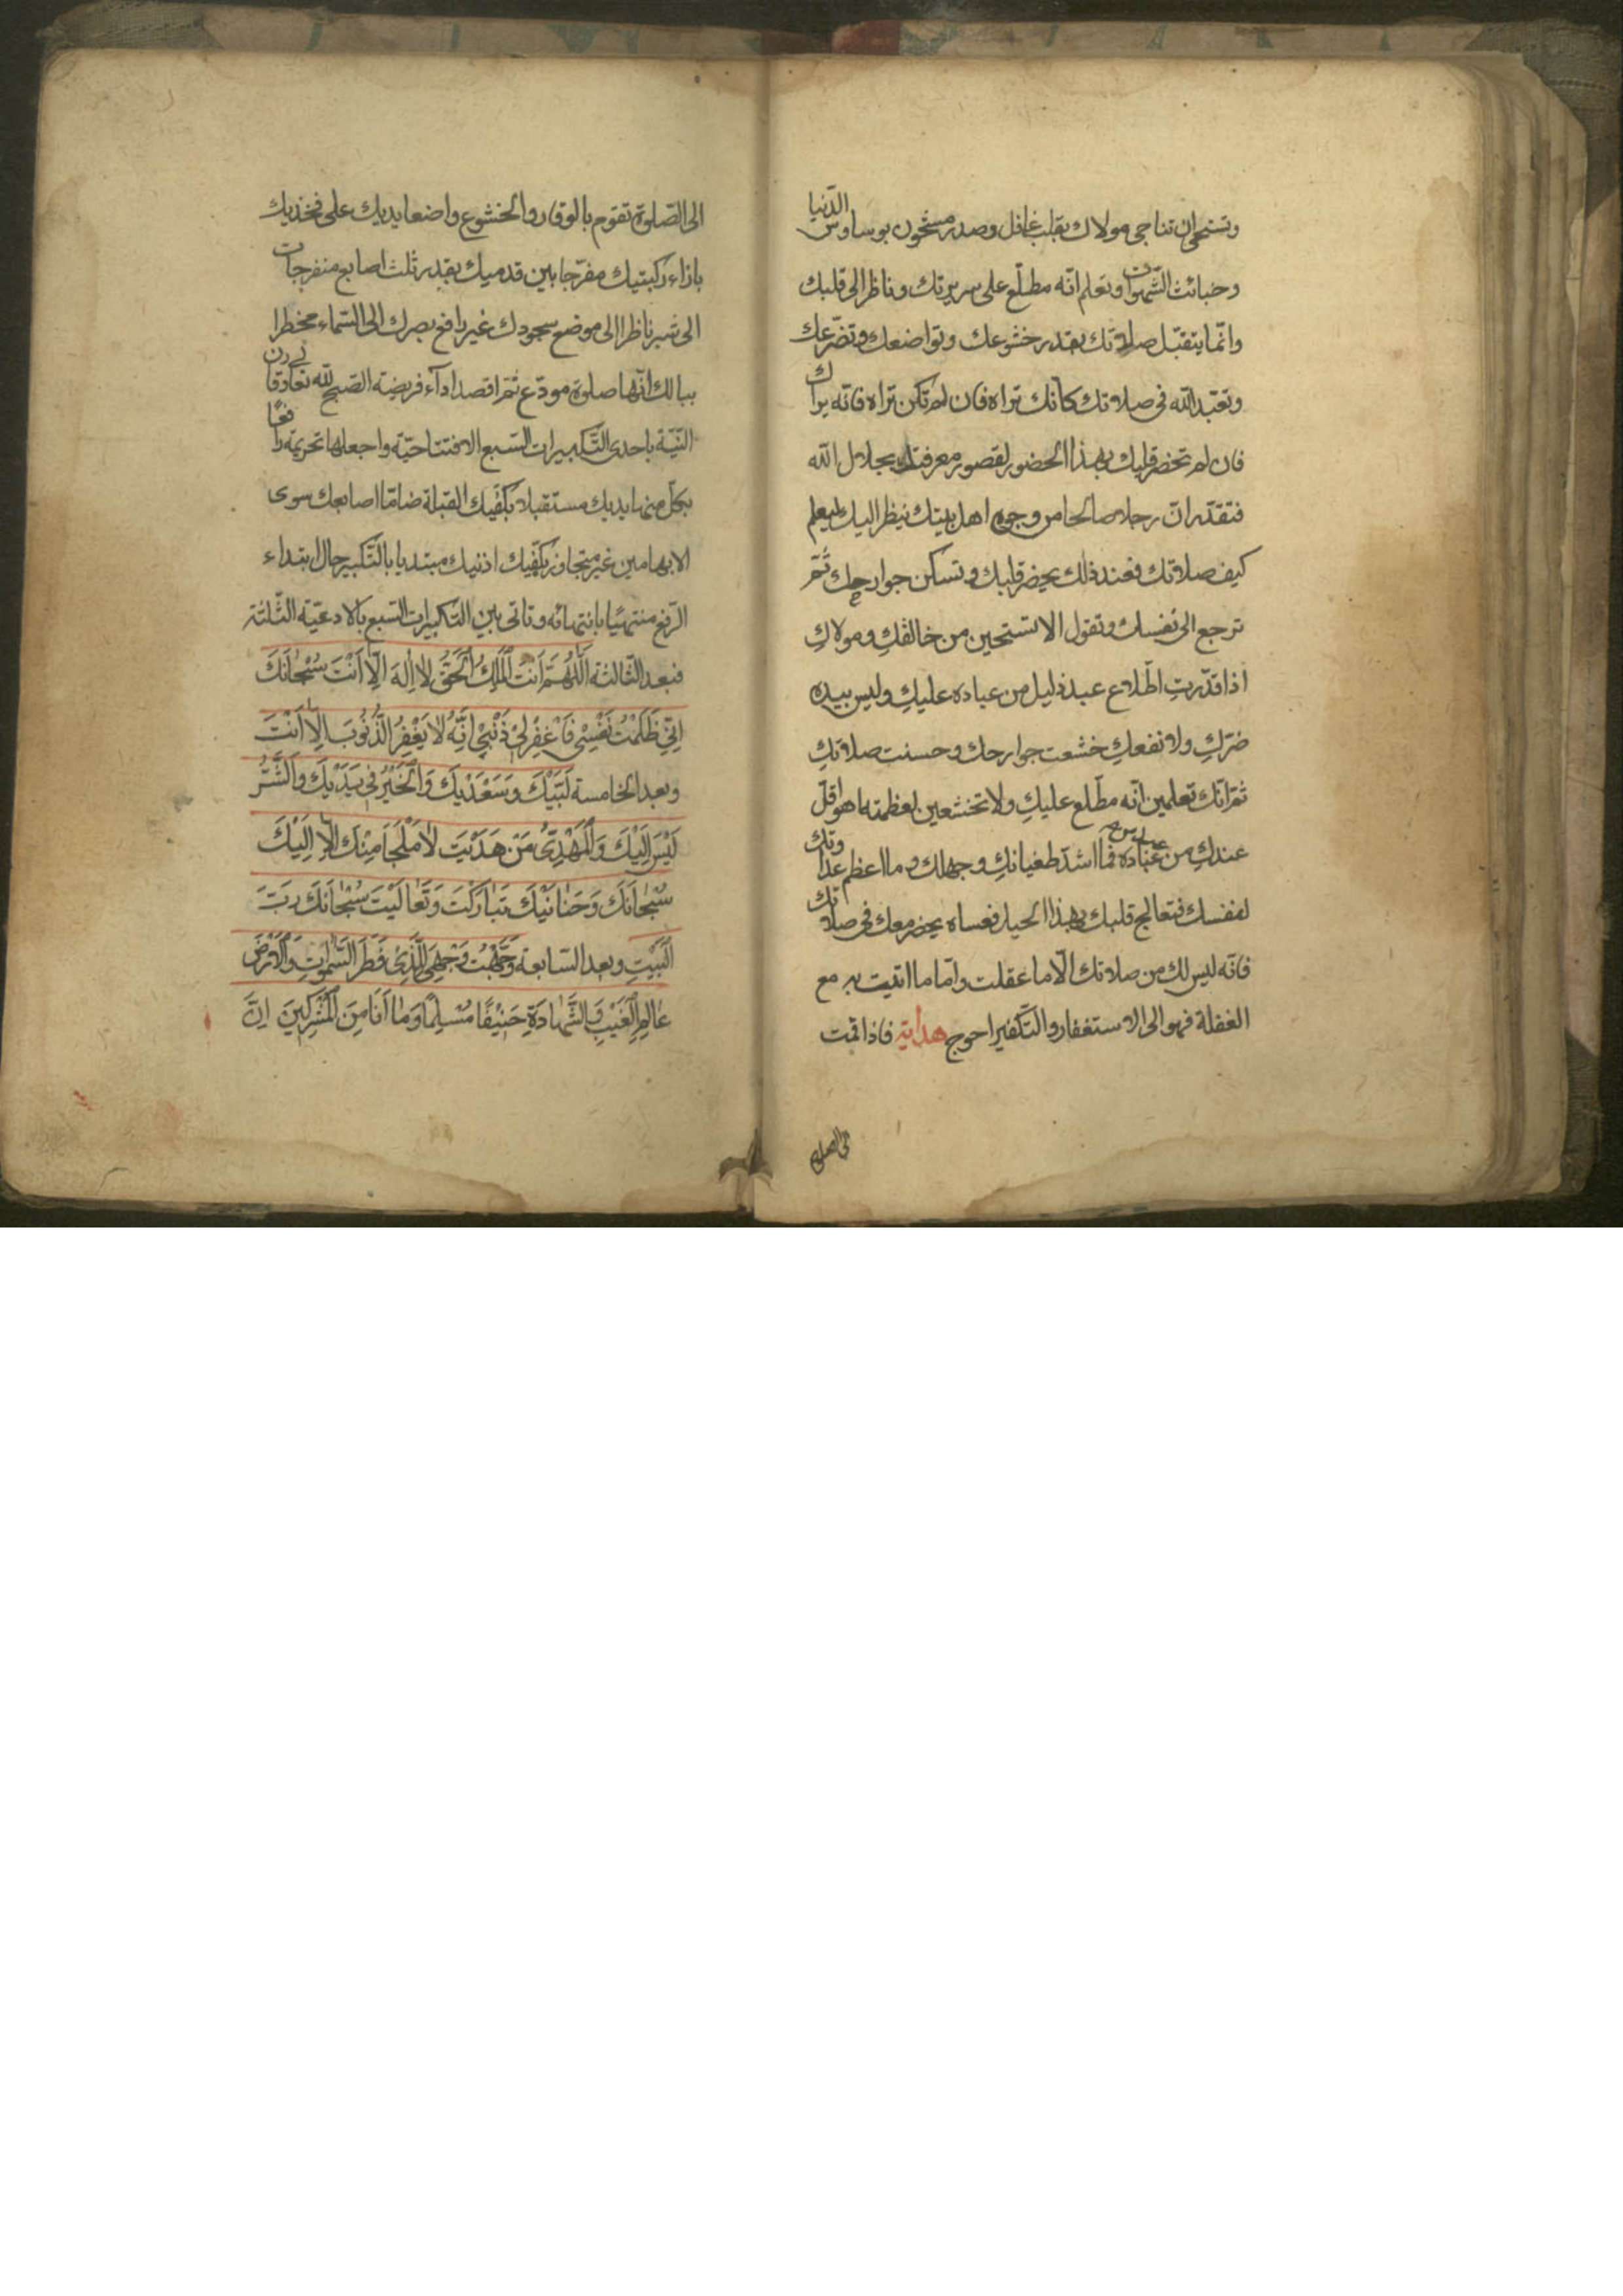 وتستحي ان تناجي مولاك بقلب غافل وصدر مشحون بوساوس الدّنيا
وخبائث الشّهوات وتعلم انّه مطلّع على سريرتك وناظر الى قلبك
وانّما يتقبّل صلاتك بقدر خشوعك وتواضعك وتضرّعك
وتعبد الله في صلاتك كانّك تراه فان لم تكن تراه فانّه يراك
فان لم تحضر قلبك بهذا الحضور لقصور معرفتك بجلال الله
فتقدّر انّ رجلا صالحا من وجوه اهل بيتك ينظر اليك ليعلم
كيف صلاتك فعند ذلك يحضر قلبك وتسكن جوارحك ثمّ
ترجع الى نفسك وتقول الا تستحين من خالقكِ ومولاكِ
اذا قدّرتِ اطّلاع عبد ذليل من عباده عليكِ وليس بيده
ضرّكِ ولا نفعكِ خشعت جوارحك وحسنت صلاتكِ
ثمّ انّك تعلمين انّه مطّلع عليكِ ولا تخشعين لعظمته اهو اقلّ
عندكِ من عباده فما اشدّ طغيانكِ وجهلك وما اعظم عداوتك
لنفسك فتعالج قلبك بهذا الحيل فعساه يحضر معك في صلاتك
فانّه ليس لك من صلاتك الّا ما عقلت وامّا ما اتيت به مع
الغفلة فهو الى الاستغفار والتّكفير احوج هداية فاذا قمت
الى الصلوة
الى الصّلوة تقوم بالوقار والخشوع واضعا يديك على فخذيك
بازاء ركبتيك مفرّجا بين قدميك بقدر ثلث اصابع منفرجات
الى شبر ناظرا الى موضع سجودك غير رافع بصرك الى السّماء مخطرا
ببالك انّها صلوة مودّع ثمّ اقصد اداء فريضة الصّبح لله تعالى وقارن
النّيّة باحدى التّكبيرات السّبع الافتتاحيّة واجعلها تحريمة رافعًا
بكلّ منها يديك مستقبلا بكفّيك القبلة ضامّا اصابعك سوى
الابهامين غير متجاوز بكفّيك اذنيك مبتديا بالتّكبير حال ابتداء
الرّفع منتهيًا بانتهائه وتاتي بين التّكبيرات السّبع بالادعية الثّلثة
فبعد الثّالثة اَللّٰهُمَّ اَنْتَ الْمَلِكُ الْحَقُّ لا اِلٰهَ اِلّا اَنْتَ سُبْحانَكَ
اِنّي ظَلَمْتُ نَفْسي فَاغْفِرْ لي ذَنْبي اِنَّهُ لا يَغْفِرُ الذُّنُوبَ اِلّا اَنْتَ
وبعد الخامسة لَبَّيْكَ وَسَعْدَيْكَ وَالْخَيْرُ في يَدَيْكَ وَالشَّرُّ
لَيْسَ اِلَيْكَ وَالْمَهْدِيُّ مَنْ هَدَيْتَ لا مَلْجَأَ مِنْكَ اِلّا اِلَيْكَ
سُبْحانَكَ وَحَنانَيْكَ تَبارَكْتَ وَتَعالَيْتَ سُبْحانَكَ رَبَّ
الْبَيْتِ وبعد السّابعة وَجَّهْتُ وَجْهِيَ لِلَّذي فَطَرَ السَّمٰواتِ وَالْاَرْضَ
عالِمِ الْغَيْبِ وَالشَّهادَةِ حَنيفًا مُسْلِمًا وَما اَنَا مِنَ الْمُشْرِكينَ اِنَّ